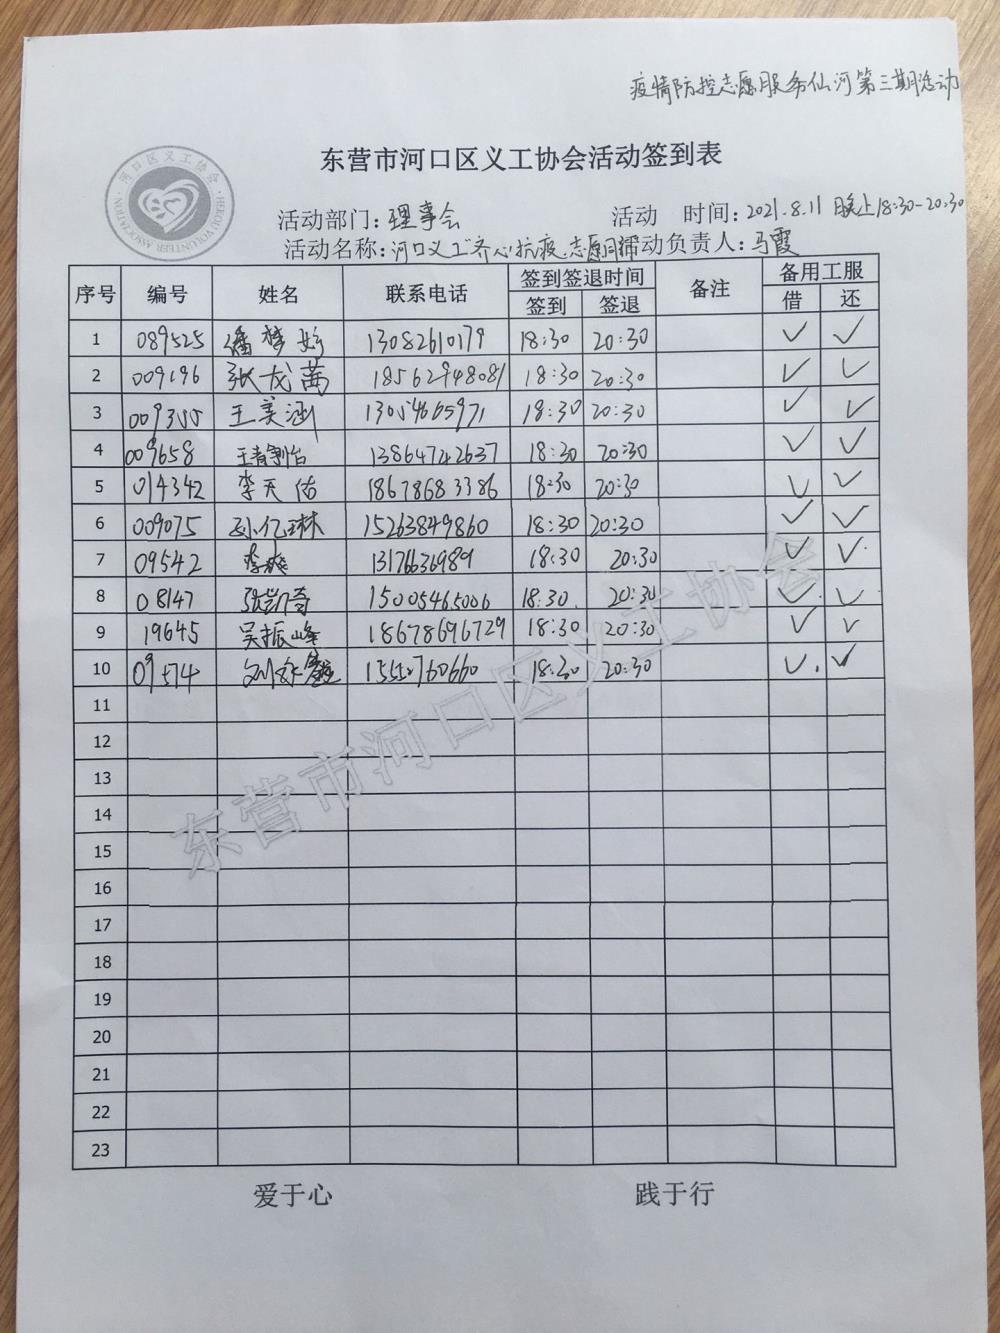 疫情防控志愿服务仙河第三期活动
东营市河口区义工协会活动签到表
河口区义工协会
HEKOU VOLUNTEER ASSOCIATION
活动部门：理事会 活动 时间：2021.8.11 晚上18:30-20:30
活动名称：河口义工“齐心抗疫 志愿同行 动负责人：马霞
序号 编号 姓名 联系电话 签到签退时间 备注 备用工服
签到 签退 借 还
1 089525 潘梦婷 13082610179 18:30 20:30 ✓ ✓
2 009196 张龙茜 18562948081 18:30 20:30 ✓ ✓
3 009355 王美涵 13054665971 18:30 20:30 ✓ ✓
4 009658 13864742637 18:30 20:30 ✓ ✓
5 014342 李天佑 18678683386 18:30 20:30 ✓ ✓
6 009075 孙亿琳 15263849860 18:30 20:30 ✓ ✓
7 09542 李爽 13176636989 18:30 20:30 ✓ ✓
8 08147 张凯奇 15005465006 18:30 20:30 ✓ ✓
9 19645 吴振峰 18678696729 18:30 20:30 ✓ ✓
10 09574 18:30 20:30 ✓ ✓
11
12
13
14
15
16
17
18
19
20
21
22
23
东营市河口区义工协会
爱于心 践于行